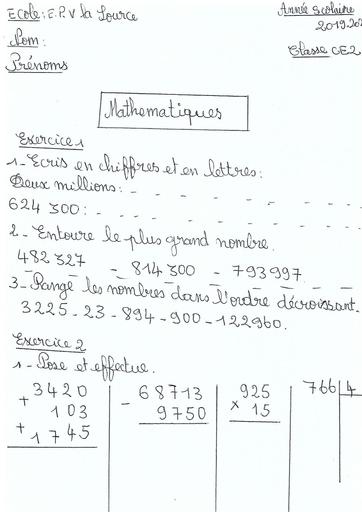 Ecole: E.P.V la Source
Année Scolaire
2019.202
Nom:
Classe CE2
Prénoms
Mathematiques
Exercice 1
1- Ecris en chiffres et en lettres:
Deux millions: - - - - - -
624 300: - - - - - - - - -
2- Entoure le plus grand nombre.
482 327 - 814 300 - 793997
3- Range les nombres dans l'ordre décroissant.
3225 - 23 - 894 - 900 - 122960.
Exercice 2
1- Pose et effectue.
3420
+ 103
+ 1745
68713
- 9750
925
x 15
766 4